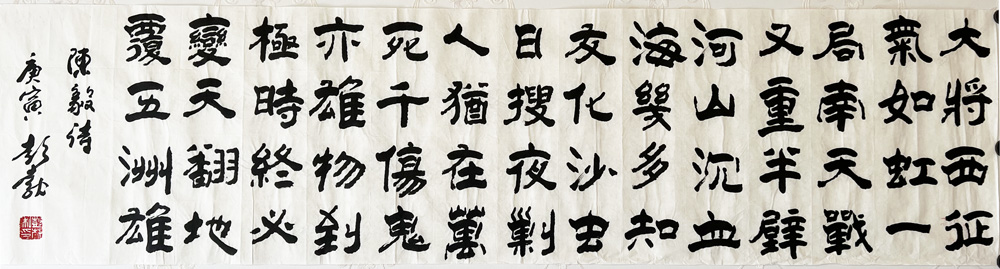 大將西征
氣如虹一
局南天戰
又重半壁
河山沉血
海幾多知
友化沙虫
日搜夜剿
人猶在萬
死千傷鬼
亦雄物到
極時終必
變天翻地
覆五洲雄
陳毅诗
庚寅 彭